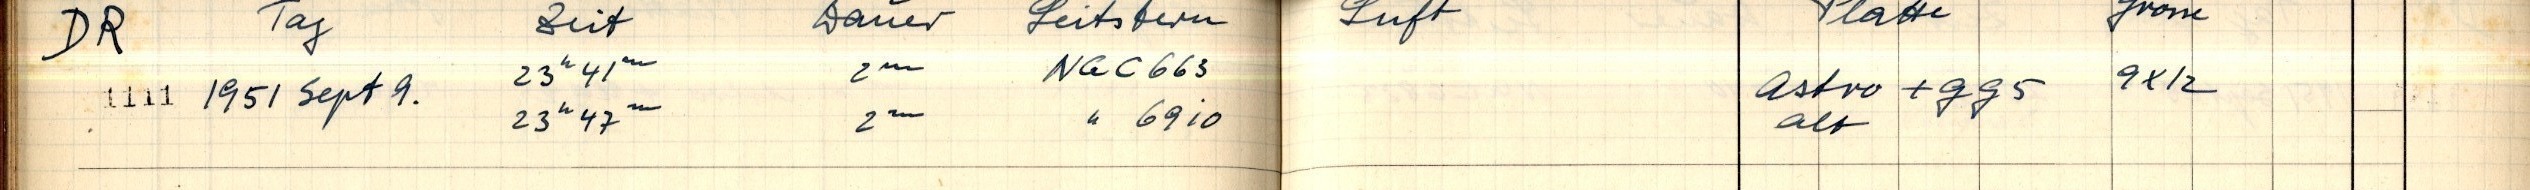 DR Tag Zeit Dauer Leitstern Luft Platte Grösse
1111 1951 Sept 9. 23h 41m 2m NGC 663 Astro + gg5 9x12
23h 47m 2m " 6910 alt